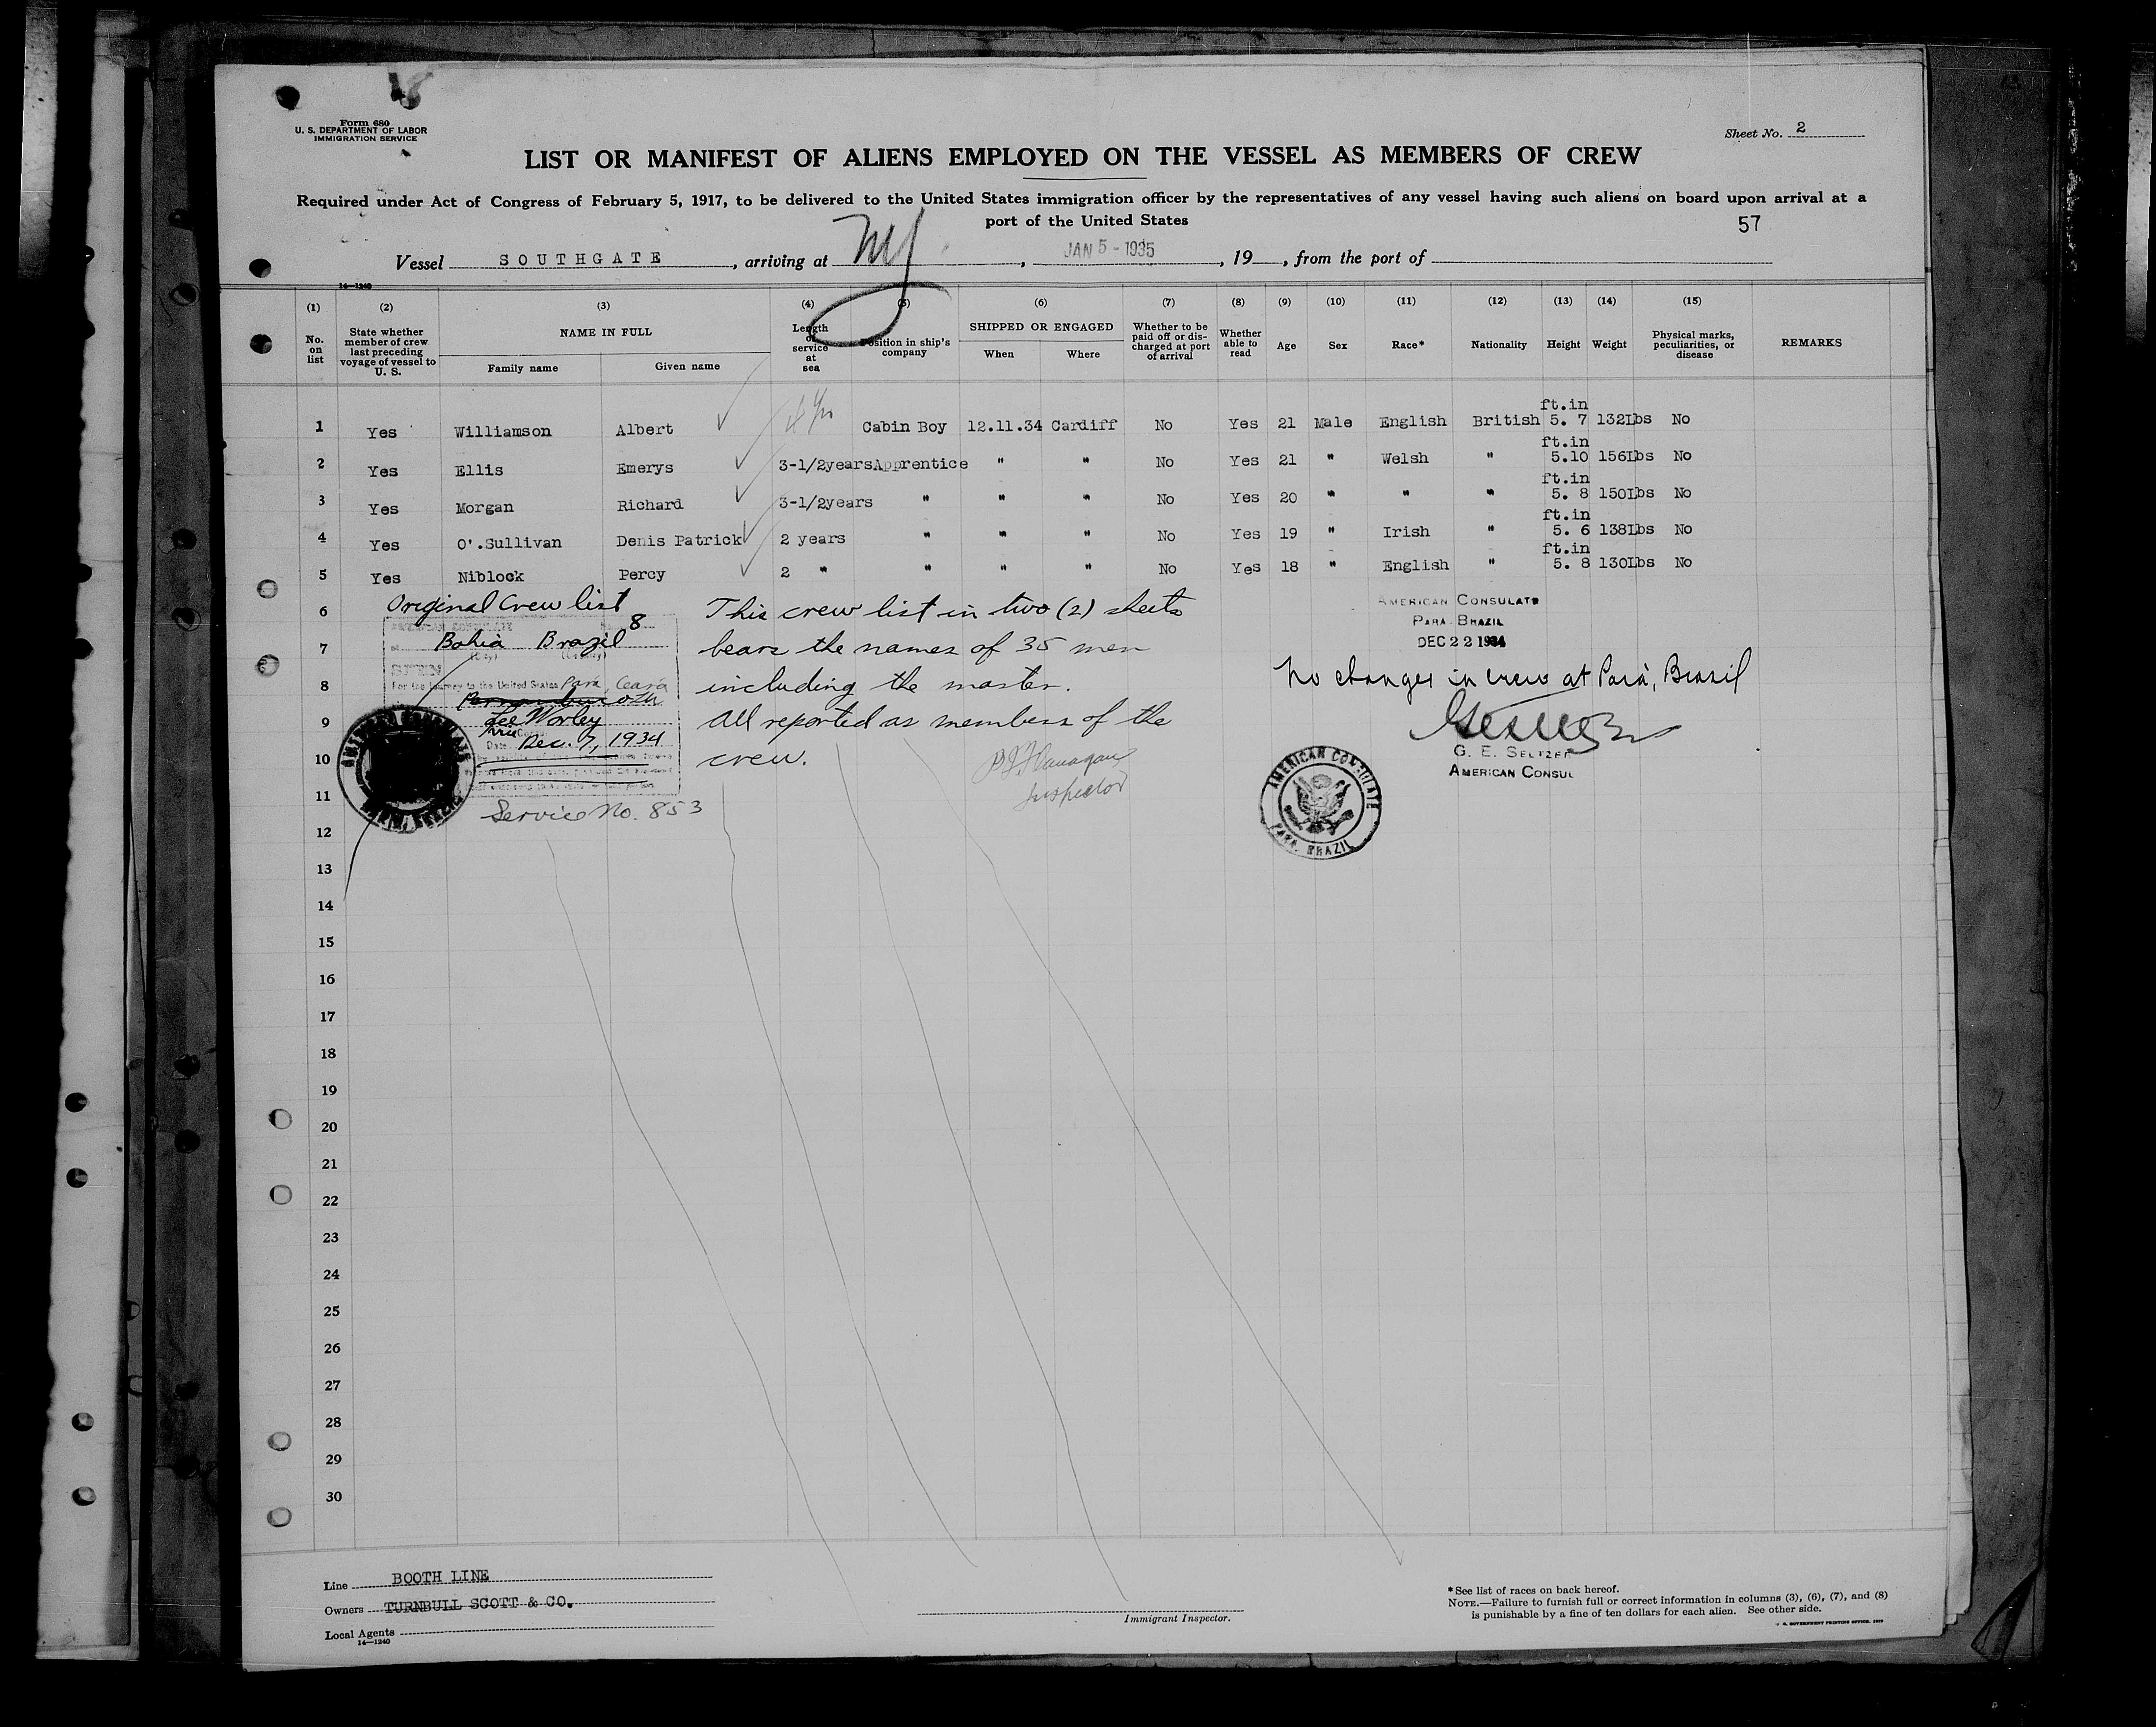 Form 680
U. S. DEPARTMENT OF LABOR
IMMIGRATION SERVICE
Sheet No. 2
LIST OR MANIFEST OF ALIENS EMPLOYED ON THE VESSEL AS MEMBERS OF CREW
Required under Act of Congress of February 5, 1917, to be delivered to the United States immigration officer by the representatives of any vessel having such aliens on board upon arrival at a
port of the United States
57
Vessel SOUTHGATE, arriving at NY, JAN 5 - 1935, 19 , from the port of
14—1240
(1) (2) (3) (4) (5) (6) (7) (8) (9) (10) (11) (12) (13) (14) (15)
No. on list
State whether member of crew last preceding voyage of vessel to U. S.
NAME IN FULL
Family name
Given name
Length of service at sea
Position in ship's company
SHIPPED OR ENGAGED
When
Where
Whether to be paid off or discharged at port of arrival
Whether able to read
Age
Sex
Race*
Nationality
Height
Weight
Physical marks, peculiarities, or disease
REMARKS
ft.in
1 Yes Williamson Albert Cabin Boy 12.11.34 Cardiff No Yes 21 Male English British 5. 7 132Lbs No
ft.in
2 Yes Ellis Emerys 3-1/2years Apprentice " " No Yes 21 " Welsh " 5.10 156Lbs No
ft.in
3 Yes Morgan Richard 3-1/2years " " " No Yes 20 " " " 5. 8 150Lbs No
ft.in
4 Yes O'.Sullivan Denis Patrick 2 years " " " No Yes 19 " Irish " 5. 6 138Lbs No
ft.in
5 Yes Niblock Percy 2 " " " " No Yes 18 " English " 5. 8 130Lbs No
6
7
8
9
10
11
12
13
14
15
16
17
18
19
20
21
22
23
24
25
26
27
28
29
30
Original Crew list
AMERICAN CONSULATE No. 8
Bahia Brazil
(City) (Country)
SEEN
For the journey to the United States Para, Ceara
Lee Worley
Date Dec. 7, 1934
Service No. 853
This crew list in two (2) sheets
bears the names of 35 men
including the master.
All reported as members of the
crew.
Inspector
AMERICAN CONSULATE
PARA BRAZIL
DEC 22 1934
No changes in crew at Pará, Brasil
G. E. SELTZER
AMERICAN CONSUL
AMERICAN CONSULATE
PARA, BRAZIL
Line BOOTH LINE
Owners TURNBULL SCOTT & CO.
Local Agents
14—1240
Immigrant Inspector.
*See list of races on back hereof.
NOTE.—Failure to furnish full or correct information in columns (3), (6), (7), and (8)
is punishable by a fine of ten dollars for each alien. See other side.